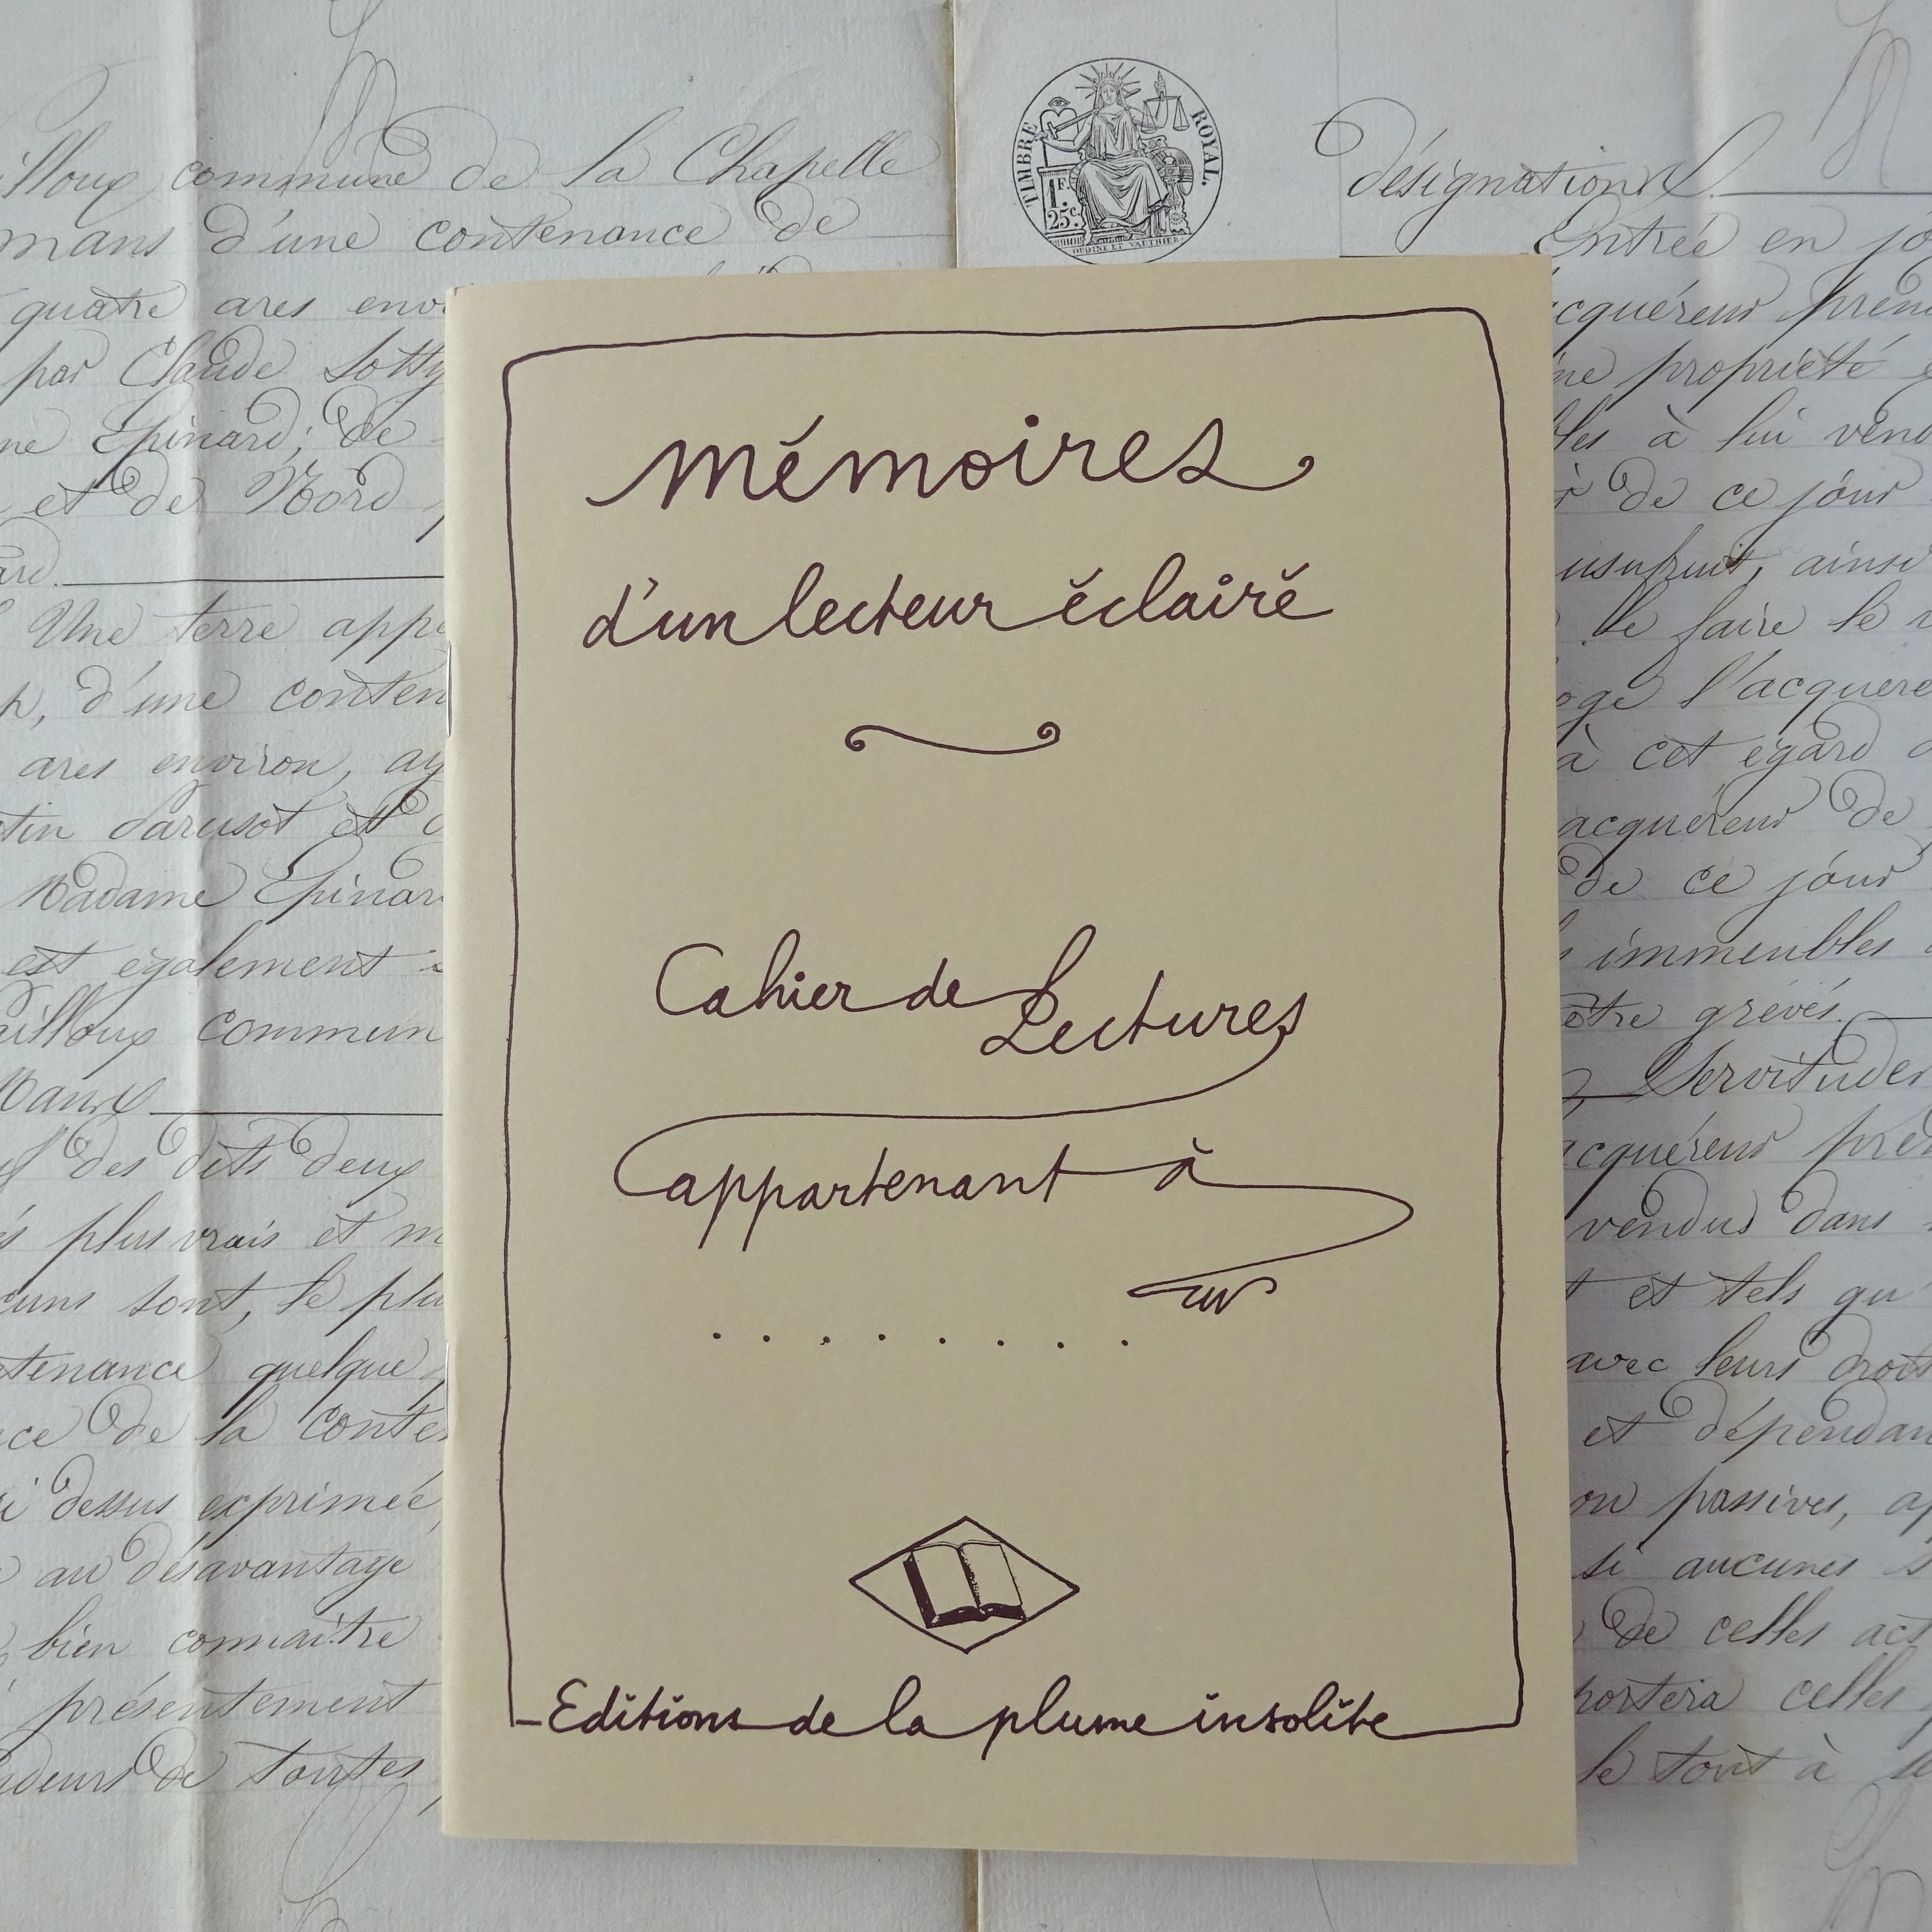 commune de la Chapelle
mans d'une contenance de
quatre ares
par Claude
Epinard; de
et de Nord
Une terre
d'une
ares environ,
et
Madame
est également
Des dits deux
plus vrais et
sont, le
quelque
de la
dessus exprimée
au désavantage
bien connaître
présentement
de toutes
TIMBRE ROYAL.
1F.
25c.
OUDINÉ ET VAUTHIER
Mémoires
d'un lecteur éclairé
Cahier de
Lectures
appartenant à
. . . . . . . .
Editions de la plume insolite
désignation
Entrée en
acquéreur
propriété
à lui
de ce jour
usufruit, ainsi
le faire le
l'acquére
à cet égard
acquéreur de
de ce jour
immeubles
être grévés.
Servitudes
acquéreur
vendus dans
et tels qu
avec leurs droits
et
ou passives,
si aucunes
de celles
portera celles
le tout à